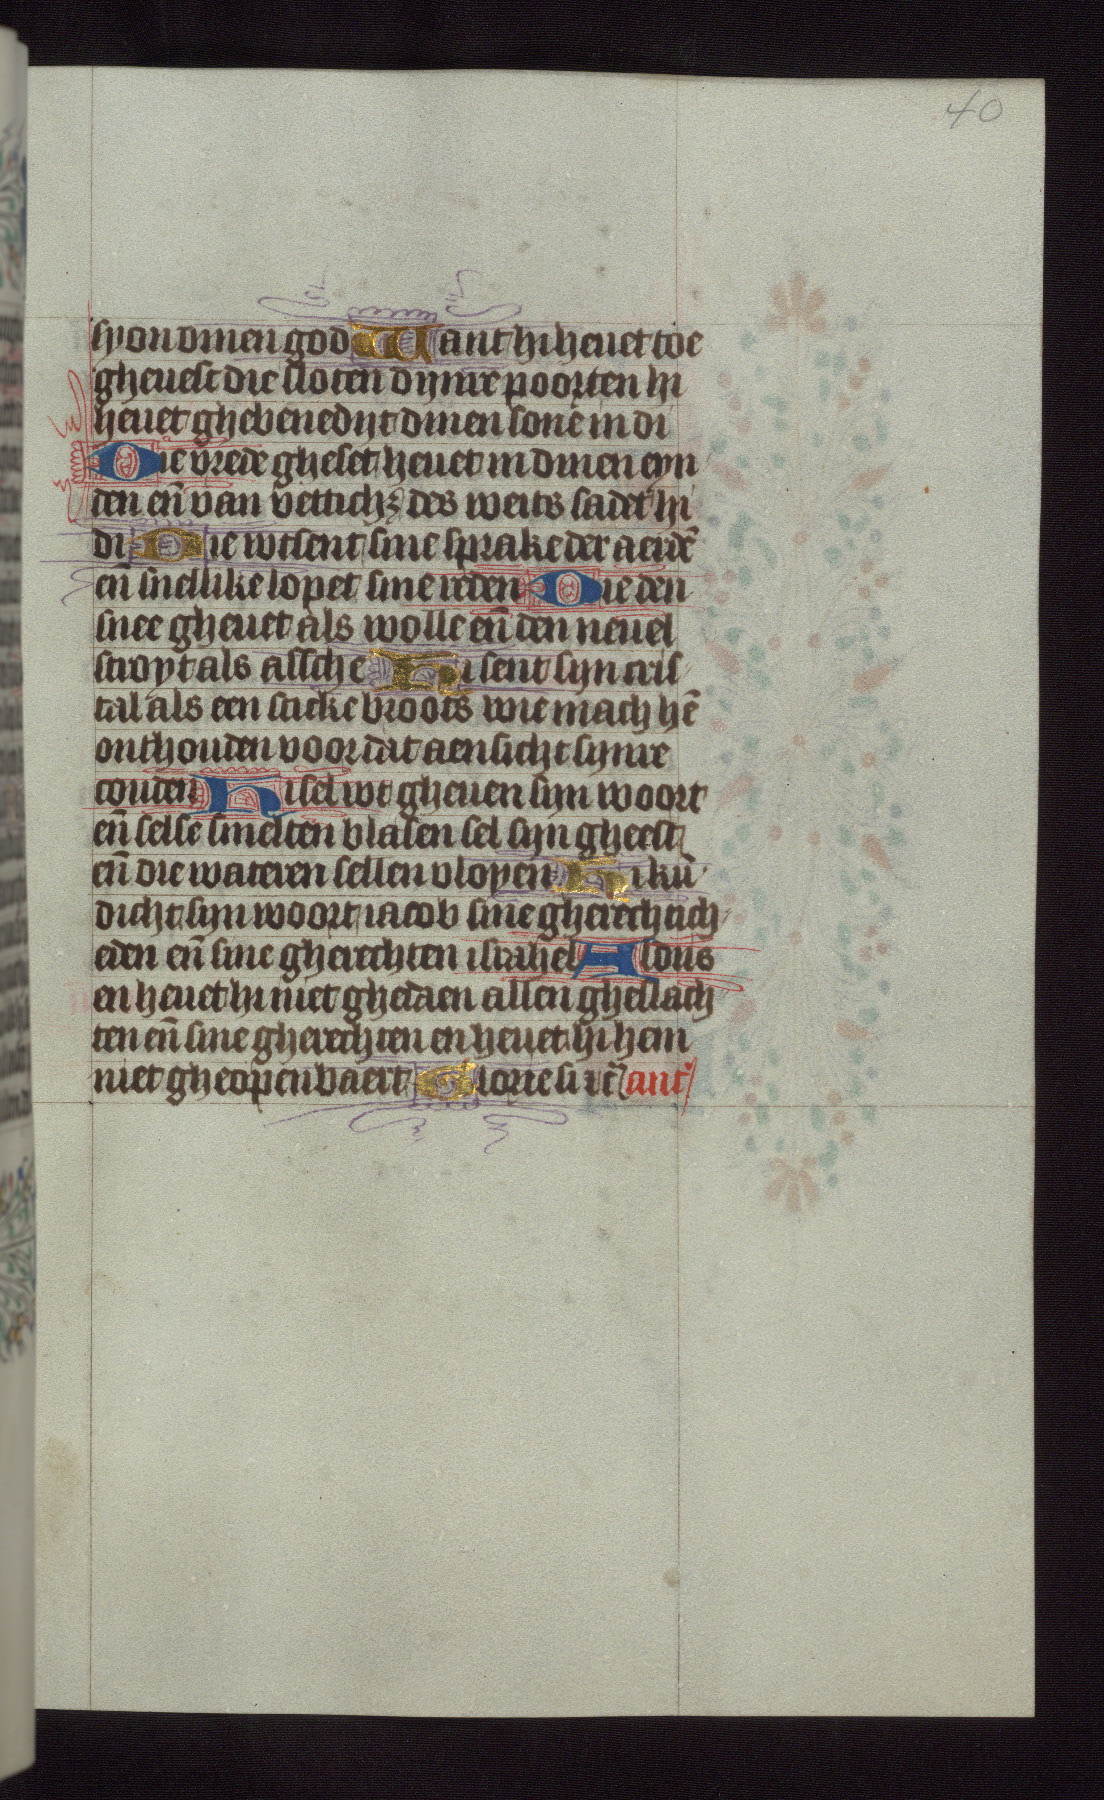 40
syon dinen god Want hi heuet toe
gheuest die sloten dijnre poorten hi
heuet ghebenedijt dinen sone in di
Die vrede gheset heuet in dinen eyn
den eñ van vetticħ des weits sadet hi
di Die wtsent sine sprake der aerdē
eñ snellike lopet sine reden Die den
snee gheuet als wolle eñ den neuel
stroyt als assche Hi sent sijn cris
tal als een sticke broots wie mach hē
onthouden voor dat aensicht sijnre
couden Hi sel wt gheuen sijn woort
eñ selse smelten blasen sel sijn gheest
eñ die wateren sellen vloyen Hi kū
dicht sijn woort iacob sine gherechtich
eden eñ sine gherechten israhel Aldus
en heuet hi niet ghedaen allen gheslach
ten eñ sine gherechten en heuet hi hem
niet gheopenbaert Glorie si ꝛc̄ ant̄